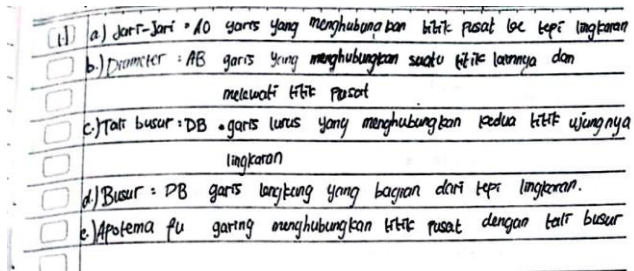 (1.) a.) Jari-Jari : AO garis yang menghubungkan titik pusat ke tepi lingkaran
b.) Diameter : AB garis yang menghubungkan suatu titik lainnya dan
melewati titik pusat
c.) Tali busur : DB . garis lurus yang menghubungkan kedua titik ujungnya
lingkaran
d.) Busur : DB garis langkung yang bagian dari tepi lingkaran.
e.) Apotema fu garing menghubungkan titik pusat dengan tali busur